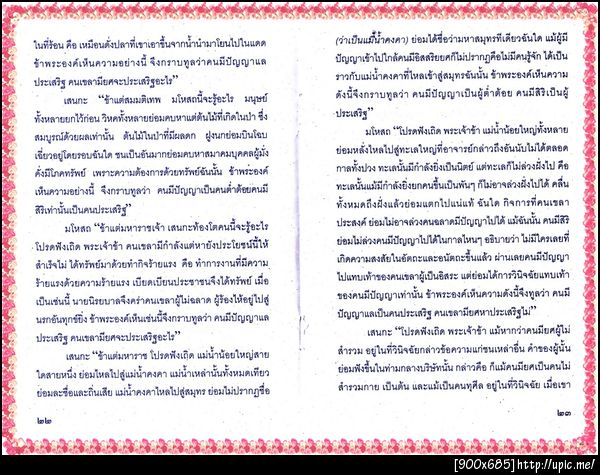 ในที่ร้อน คือ เหมือนดั่งปลาที่เขาเอาขึ้นจากน้ำนำมาโยนไปในแดด
ข้าพระองค์เห็นความอย่างนี้ จึงกราบทูลว่าคนมีปัญญาแล
ประเสริฐ คนเขลามียศจะประเสริฐอะไร”
เสนกะ “ข้าแต่สมมติเทพ มโหสถนี้จะรู้อะไร มนุษย์
ทั้งหลายยกไว้ก่อน วิหคทั้งหลายย่อมคบหาแต่ต้นไม้ที่เกิดในป่า ซึ่ง
สมบูรณ์ด้วยผลเท่านั้น ต้นไม้ในป่าที่มีผลดก ฝูงนกย่อมบินโฉบ
เฉี่ยวอยู่โดยรอบฉันใด ชนเป็นอันมากย่อมคบหาสมาคมบุคคลผู้มั่ง
คั่งมีโภคทรัพย์ เพราะความต้องการด้วยทรัพย์ฉันนั้น ข้าพระองค์
เห็นความอย่างนี้ จึงกราบทูลว่า คนมีปัญญาเป็นคนต่ำต้อยคนมี
สิริเท่านั้นเป็นคนประเสริฐ”
มโหสถ “ข้าแต่มหาราชเจ้า เสนกะท้องโตคนนี้จะรู้อะไร
โปรดฟังเถิด พระเจ้าข้า คนเขลามีกำลังแต่หายังประโยชน์นี้ให้
สำเร็จไม่ ได้ทรัพย์มาด้วยทำกิจร้ายแรง คือ ทำการงานที่มีความ
ร้ายแรงด้วยความร้ายแรง เบียดเบียนประชาชนจึงได้ทรัพย์ เมื่อ
เป็นเช่นนี้ นายนิรยบาลจึงคร่าคนเขลาผู้ไม่ฉลาด ผู้ร้องไห้อยู่ไปสู่
นรกอันทุกข์ยิ่ง ข้าพระองค์เห็นเช่นนี้จึงกราบทูลว่า คนมีปัญญาแล
ประเสริฐ คนเขลามียศจะประเสริฐอะไร”
เสนกะ “ข้าแต่มหาราช โปรดฟังเถิด แม่น้ำน้อยใหญ่สาย
ใดสายหนึ่ง ย่อมไหลไปสู่แม่น้ำคงคา แม่น้ำเหล่านั้นทั้งหมดเทียว
ย่อมละชื่อและถิ่นเสีย แม่น้ำคงคาไหลไปสู่สมุทร ย่อมไม่ปรากฏชื่อ
๒๒
(ว่าเป็นแม่น้ำคงคา) ย่อมได้ชื่อว่ามหาสมุทรทีเดียวฉันใด แม้ผู้มี
ปัญญาเข้าไปใกล้คนมีอิสสริยยศก็ไม่ปรากฏคือไม่มีคนรู้จัก ได้เป็น
ราวกับแม่น้ำคงคาที่ไหลเข้าสู่สมุทรฉันนั้น ข้าพระองค์เห็นความ
ดังนี้จึงกราบทูลว่า คนมีปัญญาเป็นผู้ต่ำต้อย คนมีสิริเป็นผู้
ประเสริฐ”
มโหสถ “โปรดฟังเถิด พระเจ้าข้า แม่น้ำน้อยใหญ่ทั้งหลาย
ย่อมหลั่งไหลไปสู่ทะเลใหญ่ที่อาจารย์กล่าวถึงอันนับไม่ได้ตลอด
กาลทั้งปวง ทะเลนั้นมีกำลังยิ่งเป็นนิตย์ แต่ทะเลก็ไม่ล่วงฝั่งไป คือ
ทะเลนั้นแม้มีกำลังยิ่งยกคนขึ้นเป็นพันๆ ก็ไม่อาจล่วงฝั่งไปได้ คลื่น
ทั้งหมดถึงฝั่งแล้วย่อมแตกไปแน่แท้ ฉันใด กิจการที่คนเขลา
ประสงค์ ย่อมไม่อาจล่วงคนฉลาดมีปัญญาไปได้ แม้ฉันนั้น คนมีสิริ
ย่อมไม่ล่วงคนมีปัญญาไปได้ในกาลไหนๆ อธิบายว่า ไม่มีใครเลยที่
เกิดความสงสัยในอัตถะและอนัตถะขึ้นแล้ว ผ่านเลยคนมีปัญญา
ไปแทบเท้าของคนเขลาผู้เป็นอิสระ แต่ย่อมได้การวินิจฉัยแทบเท้า
ของคนมีปัญญาเท่านั้น ข้าพระองค์เห็นความดังนี้จึงทูลว่า คนมี
ปัญญาแลเป็นคนประเสริฐ คนเขลามียศหาประเสริฐไม่”
เสนกะ “โปรดฟังเถิด พระเจ้าข้า แม้หากว่าคนมียศผู้ไม่
สำรวม อยู่ในที่วินิจฉัยกล่าวข้อความแก่ชนเหล่าอื่น คำของผู้นั้น
ย่อมฟังขึ้นในท่ามกลางบริษัทนั้น กล่าวคือ ก็แม้คนมียศเป็นคนไม่
สำรวมกาย เป็นต้น และแม้เป็นคนทุศีล อยู่ในที่วินิจฉัย เมื่อเขา
๒๓
[900x685] http://upic.me/